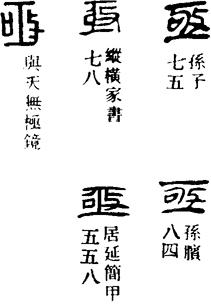 孫子
七五
縱橫家書
七八
與天無極鏡
孫臏
八四
居延簡甲
五五八